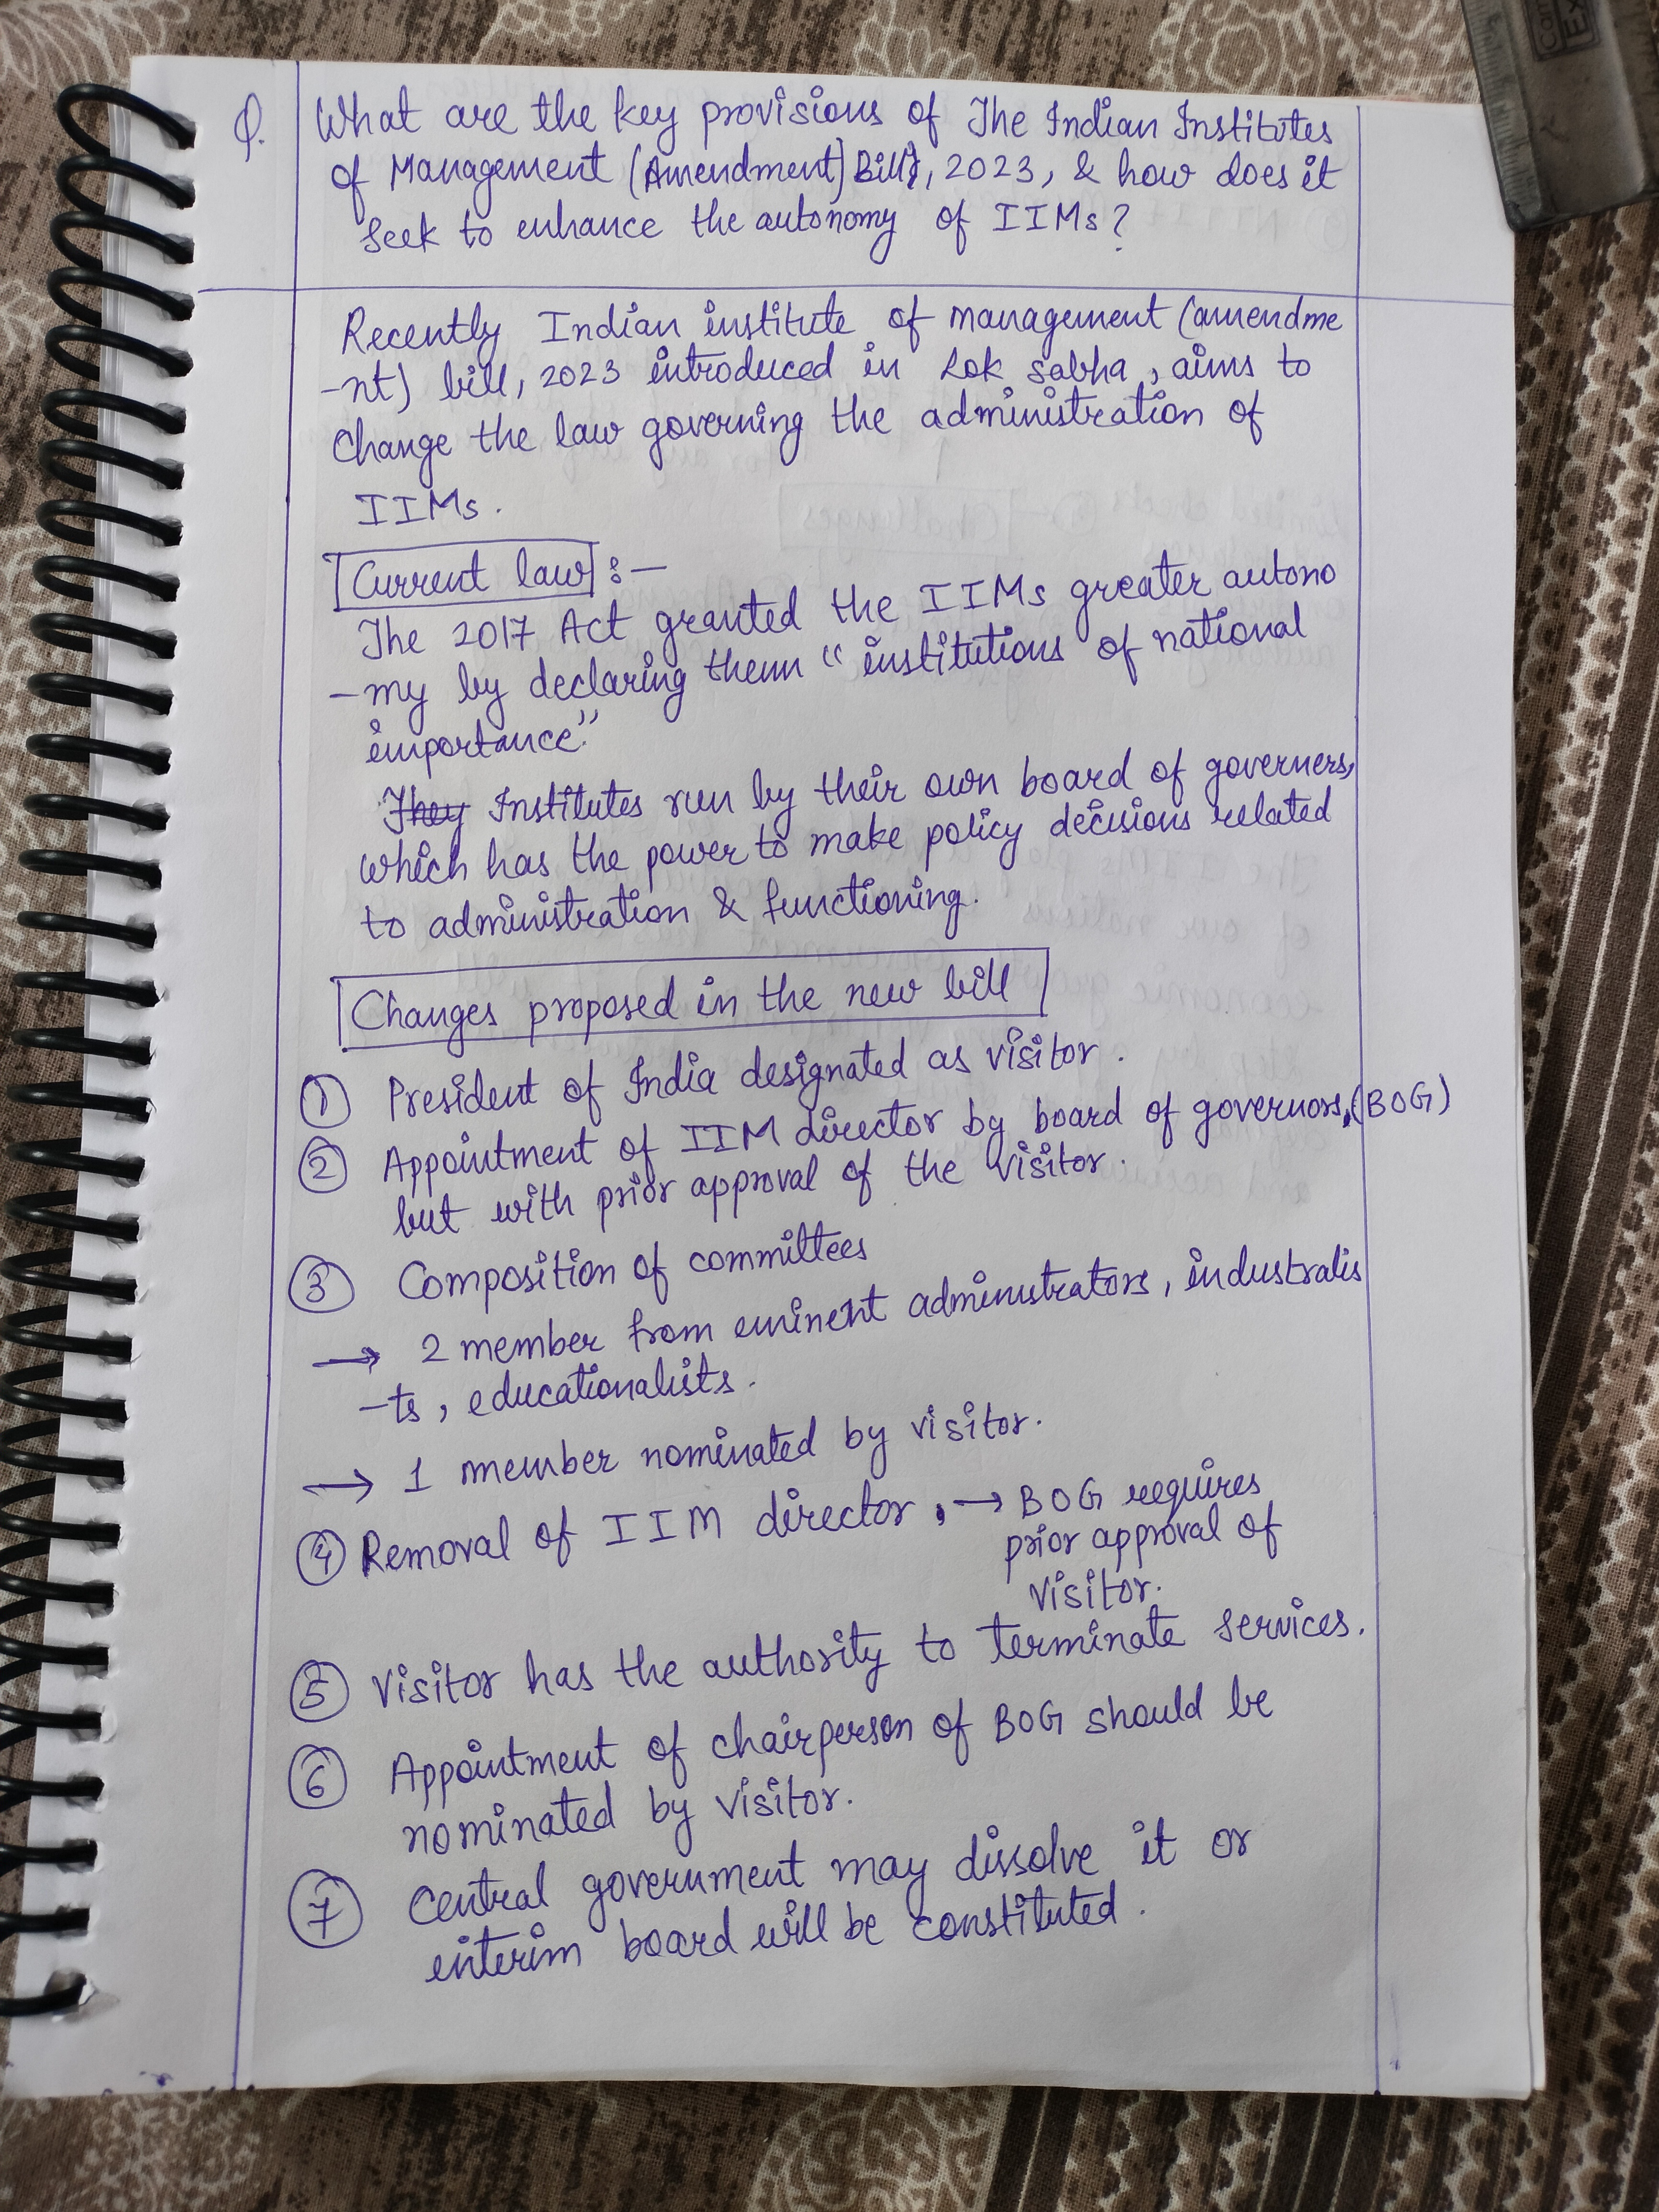 Q. What are the key provisions of The Indian Institutes
of Management (Amendment) Bill, 2023, & how does it
seek to enhance the autonomy of IIMs?
Recently Indian institute of management (amendme
-nt) bill, 2023 introduced in Lok Sabha, aims to
change the law governing the administration of
IIMs.
Current law :-
The 2017 Act granted the IIMs greater autono
-my by declaring them "institutions of national
importance."
They Institutes run by their own board of governers,
which has the power to make policy decisions related
to administration & functioning.
Changes proposed in the new bill
① President of India designated as visitor.
② Appointment of IIM director by board of governors, (BOG)
but with prior approval of the visitor.
③ Composition of committees
→ 2 member from eminent administrators, industralis
-ts, educationalists.
→ 1 member nominated by visitor.
④ Removal of IIM director, → BOG requires
prior approval of
visitor.
⑤ Visitor has the authority to terminate services.
⑥ Appointment of chairperson of BOG should be
nominated by visitor.
⑦ Central government may dissolve it or
interim board will be constituted.